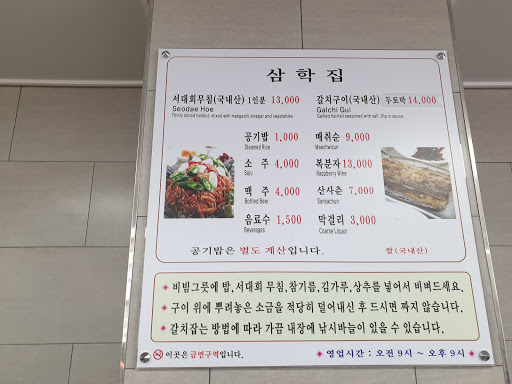 삼학집
서대회무침(국내산) 1인분 13,000
Seodae Hoe
Thinly sliced halibut, mixed with makgeolli vinegar and vegetables
갈치구이(국내산) 두토막 14,000
Galchi Gui
Grilled hairtail seasoned with salt, Dip in sauce.
공기밥 1,000
Steamed Rice
매취순 9,000
Maechwisun
소 주 4,000
Soju
복분자 13,000
Raspberry Wine
맥 주 4,000
Bottled Beer
산사춘 7,000
Sansachun
음료수 1,500
Beverages
막걸리 3,000
Coarse Liquor
공기밥은 별도 계산입니다.
쌀(국내산)
◈ 비빔그릇에 밥.서대회 무침.참기름.김가루.상추를 넣어서 비벼드세요.
◈ 구이 위에 뿌려놓은 소금을 적당히 덜어내신 후 드시면 짜지 않습니다.
◈ 갈치잡는 방법에 따라 가끔 내장에 낚시바늘이 있을 수 있습니다.
이곳은 금연구역입니다.
◈ 영업시간 : 오전 9시 ~ 오후 9시 ◈